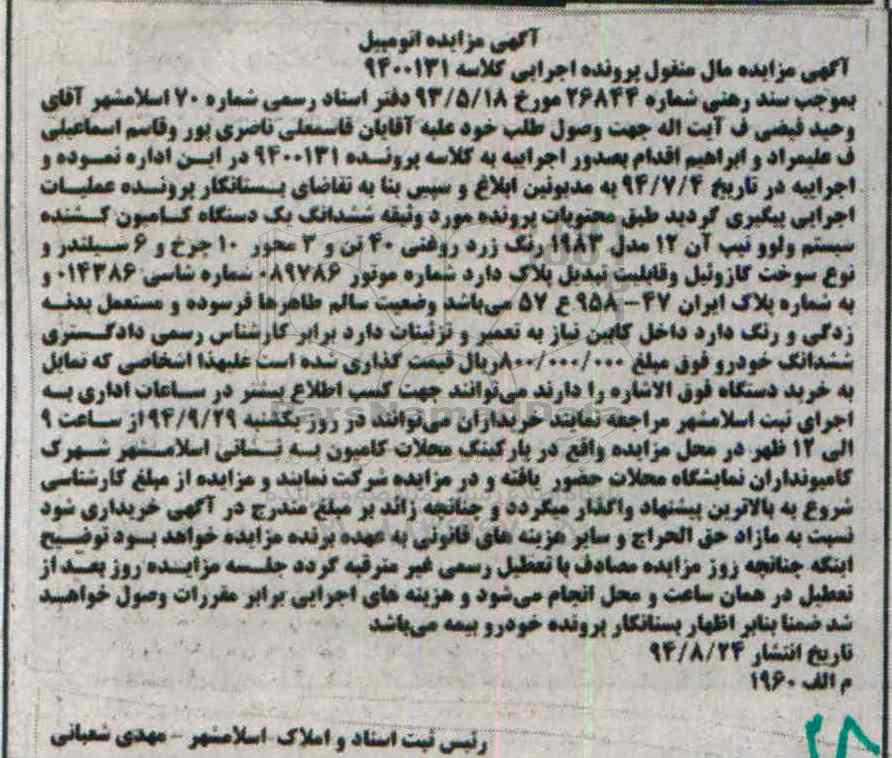 آگهی مزایده اتومبیل
آگهی مزایده مال منقول پرونده اجرایی کلاسه ۹۴۰۰۱۳۱
بموجب سند رهنی شماره ۲۶۸۴۴ مورخ ۹۳/۵/۱۸ دفتر اسناد رسمی شماره ۷۰ اسلامشهر آقای
وحید فیضی ف آیت اله جهت وصول طلب خود علیه آقایان قاسمعلی ناصری پور وقاسم اسماعیلی
ف علیمراد و ابراهیم اقدام بصدور اجراییه به کلاسه پرونده ۹۴۰۰۱۳۱ در این اداره نموده و
اجراییه در تاریخ ۹۴/۷/۴ به مدیونین ابلاغ و سپس بنا به تقاضای بستانکار پرونده عملیات
اجرایی پیگیری گردید طبق محتویات پرونده مورد وثیقه ششدانگ یک دستگاه کامیون کشنده
سیستم ولوو تیپ آن ۱۲ مدل ۱۹۸۳ رنگ زرد روغنی ۴۰ تن و ۳ محور ۱۰ چرخ و ۶ سیلندر و
نوع سوخت گازوئیل وقابلیت تبدیل پلاک دارد شماره موتور ۰۸۹۷۸۶ شماره شاسی ۰۱۴۳۸۶ و
به شماره پلاک ایران ۴۷- ۹۵۸ ع ۵۷ می‌باشد وضعیت سالم ظاهرها فرسوده و مستعمل بدنه
زدگی و رنگ دارد داخل کابین نیاز به تعمیر و تزئینات دارد برابر کارشناس رسمی دادگستری
ششدانگ خودرو فوق مبلغ ۸۰۰/۰۰۰/۰۰۰ریال قیمت گذاری شده است علیهذا اشخاصی که تمایل
به خرید دستگاه فوق الاشاره را دارند می‌توانند جهت کسب اطلاع بیشتر در ساعات اداری به
اجرای ثبت اسلامشهر مراجعه نمایند خریداران می‌توانند در روز یکشنبه ۹۴/۹/۲۹ از ساعت ۹
الی ۱۲ ظهر در محل مزایده واقع در پارکینگ محلات کامیون به نشانی اسلامشهر شهرک
کامیونداران نمایشگاه محلات حضور یافته و در مزایده شرکت نمایند و مزایده از مبلغ کارشناسی
شروع به بالاترین پیشنهاد واگذار میگردد و چنانچه زائد بر مبلغ مندرج در آگهی خریداری شود
نسبت به مازاد حق الحراج و سایر هزینه های قانونی به عهده برنده مزایده خواهد بود توضیح
اینکه چنانچه روز مزایده مصادف با تعطیل رسمی غیر مترقبه گردد جلسه مزایده روز بعد از
تعطیل در همان ساعت و محل انجام می‌شود و هزینه های اجرایی برابر مقررات وصول خواهد
شد ضمنا بنابر اظهار بستانکار پرونده خودرو بیمه می‌باشد
تاریخ انتشار ۹۴/۸/۲۴
م الف ۱۹۶۰
رئیس ثبت اسناد و املاک اسلامشهر - مهدی شعبانی
۲۸
ParsNamadData